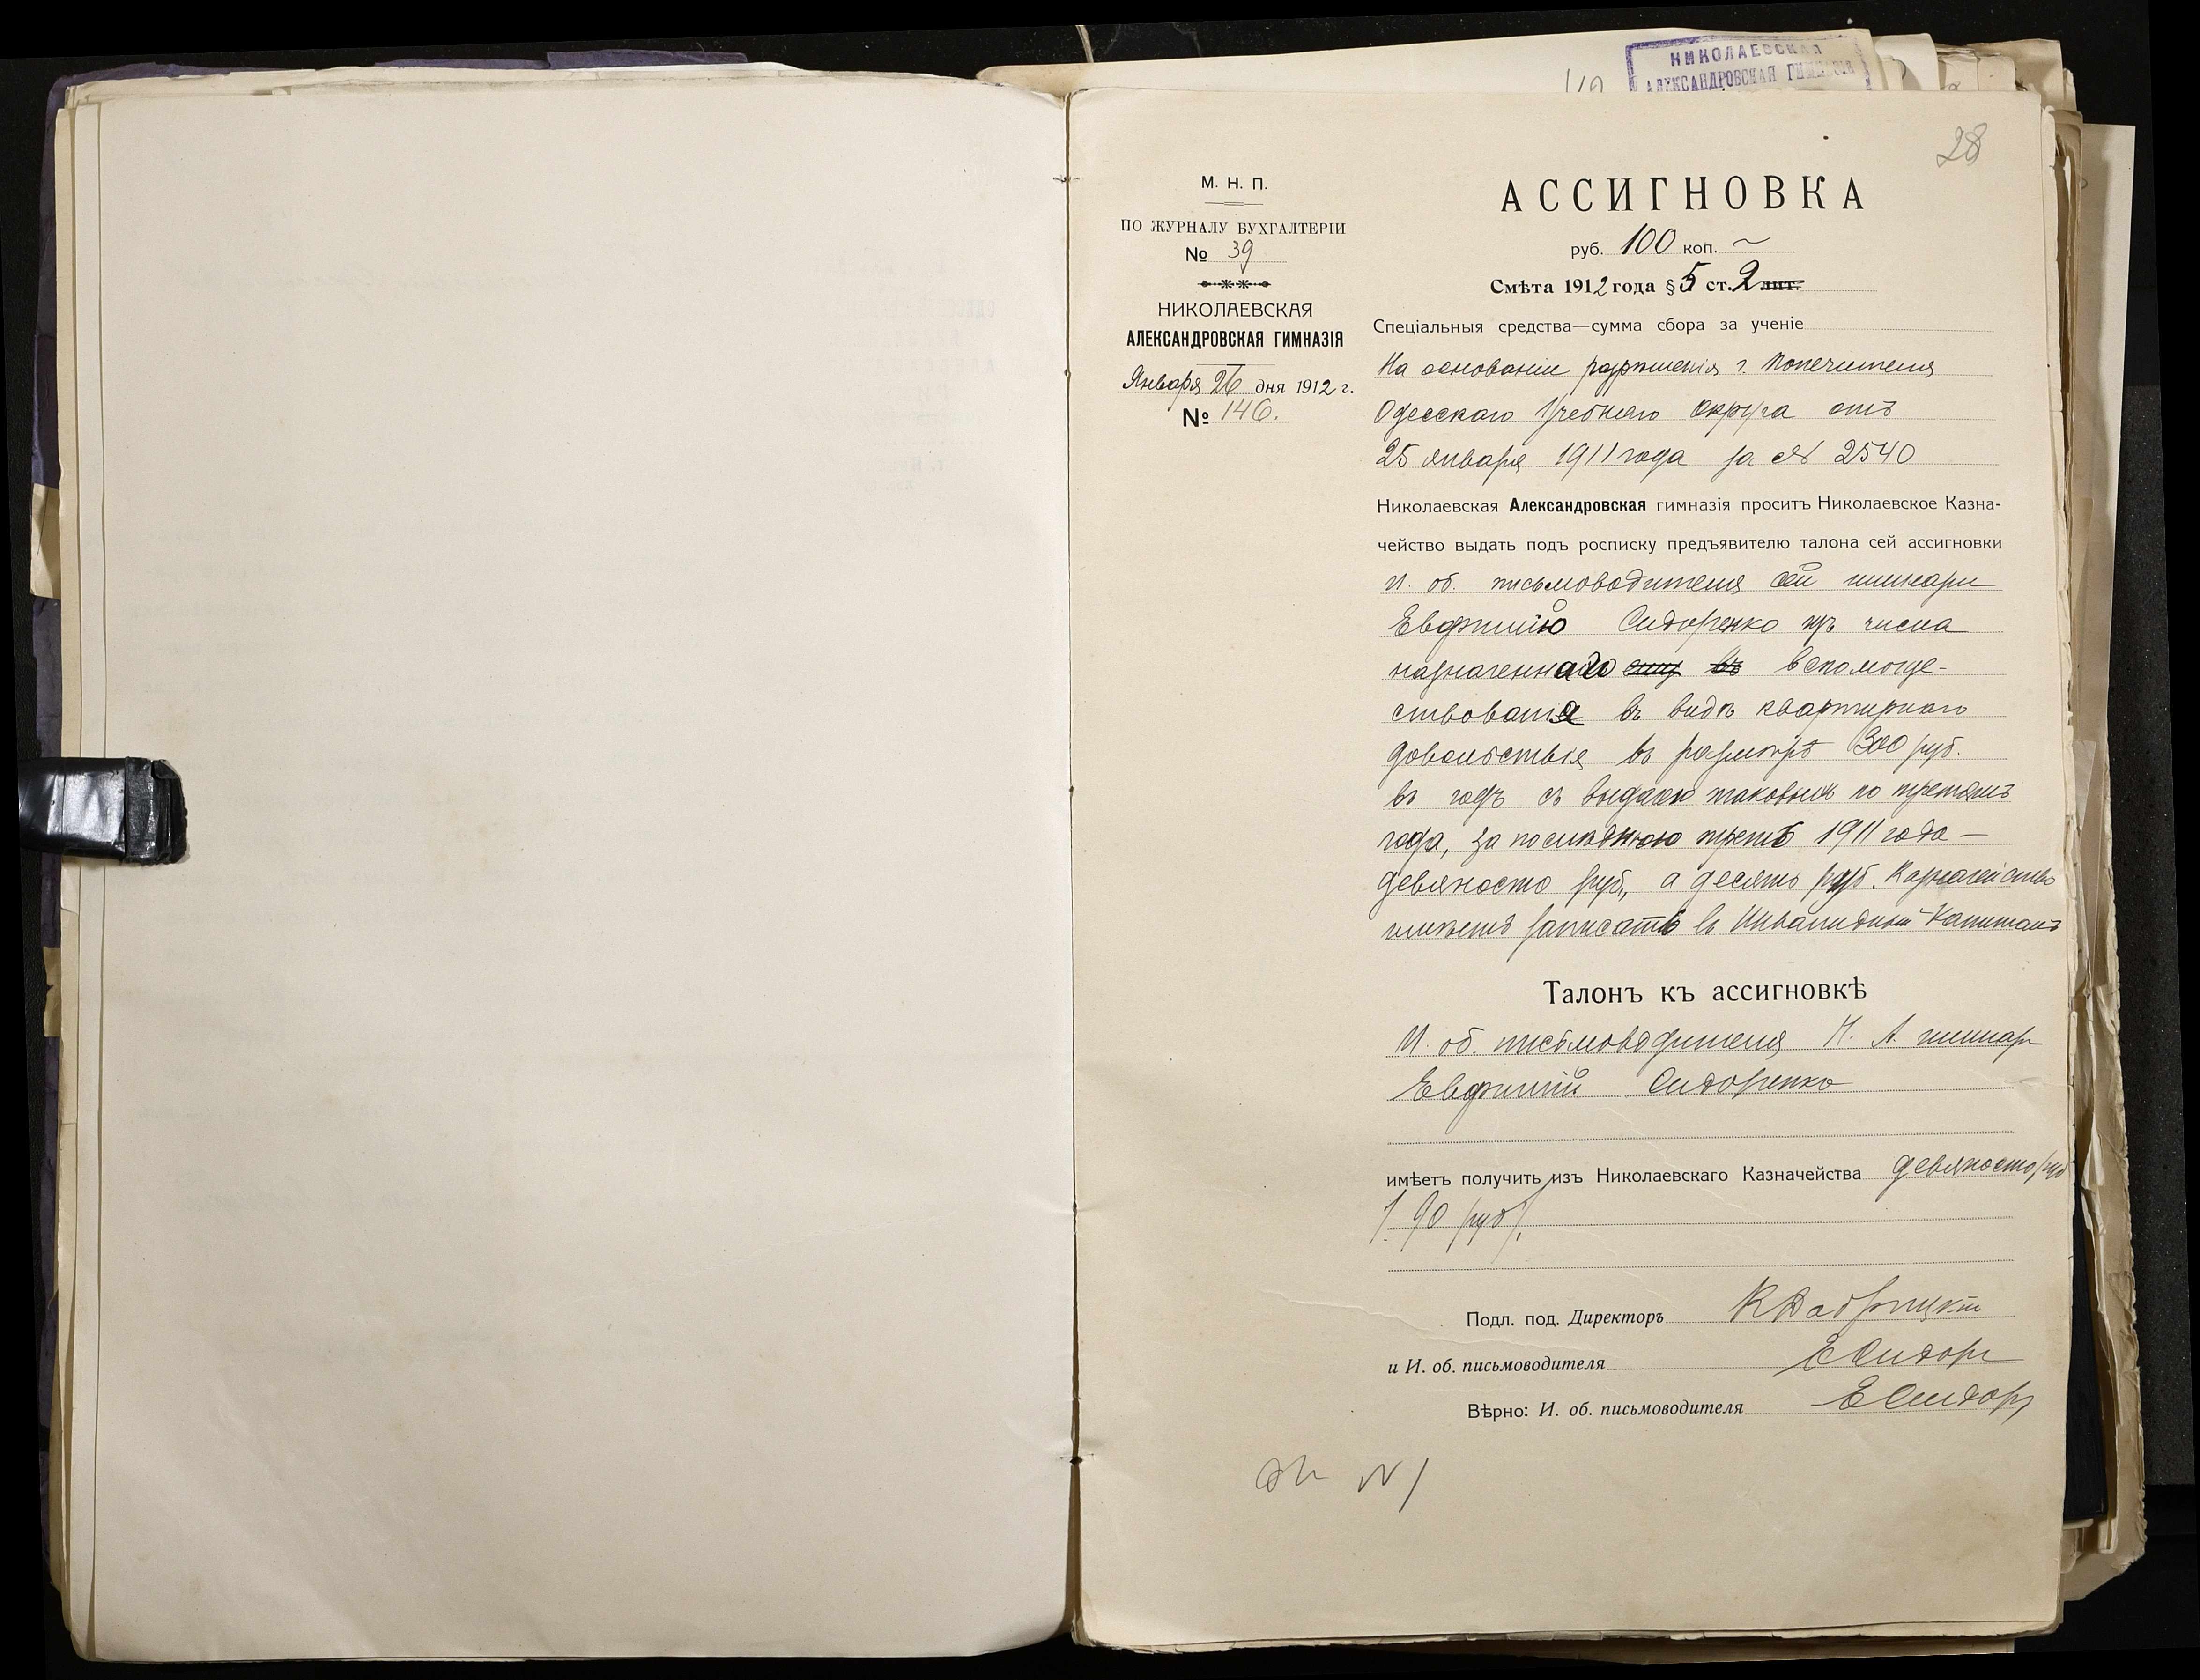 НИКОЛАЕВСКАЯ
АЛЕКСАНДРОВСКАЯ ГИМНАЗІЯ
28
М. Н. П.
ПО ЖУРНАЛУ БУХГАЛТЕРІИ
№ 39
НИКОЛАЕВСКАЯ
АЛЕКСАНДРОВСКАЯ ГИМНАЗІЯ
Января 26 дня 1912 г.
№ 146.
АССИГНОВКА
руб. 100 коп. ~
Смѣта 1912 года § 5 ст. 2 лит.
Спеціальныя средства—сумма сбора за ученіе
На основаніи разрѣшенія г. Попечителя
Одесскаго Учебнаго Округа отъ
25 января 1911 года за № 2540
Николаевская Александровская гимназія проситъ Николаевское Казна-
чейство выдать подъ росписку предъявителю талона сей ассигновки
и. об. письмоводителя сей гимназіи
Евфимію Сидоренко изъ числа
назначеннаго ему въ вспомоще-
ствованія въ видѣ квартирнаго
довольствія въ размѣрѣ 300 руб.
въ годъ съ выдачею таковыхъ по третямъ
года, за послѣднюю треть 1911 года —
девяносто руб., а десять руб. Казначейство
имѣетъ записать въ Инвалидный Капиталъ
Талонъ къ ассигновкѣ
И. об. письмоводителя Н. А. гимназіи
Евфимій Сидоренко
имѣетъ получить изъ Николаевскаго Казначейства девяносто руб
/. 90 руб /.
Подл. под. Директоръ
и И. об. письмоводителя Е Сидор
Вѣрно: И. об. письмоводителя Е Сидор